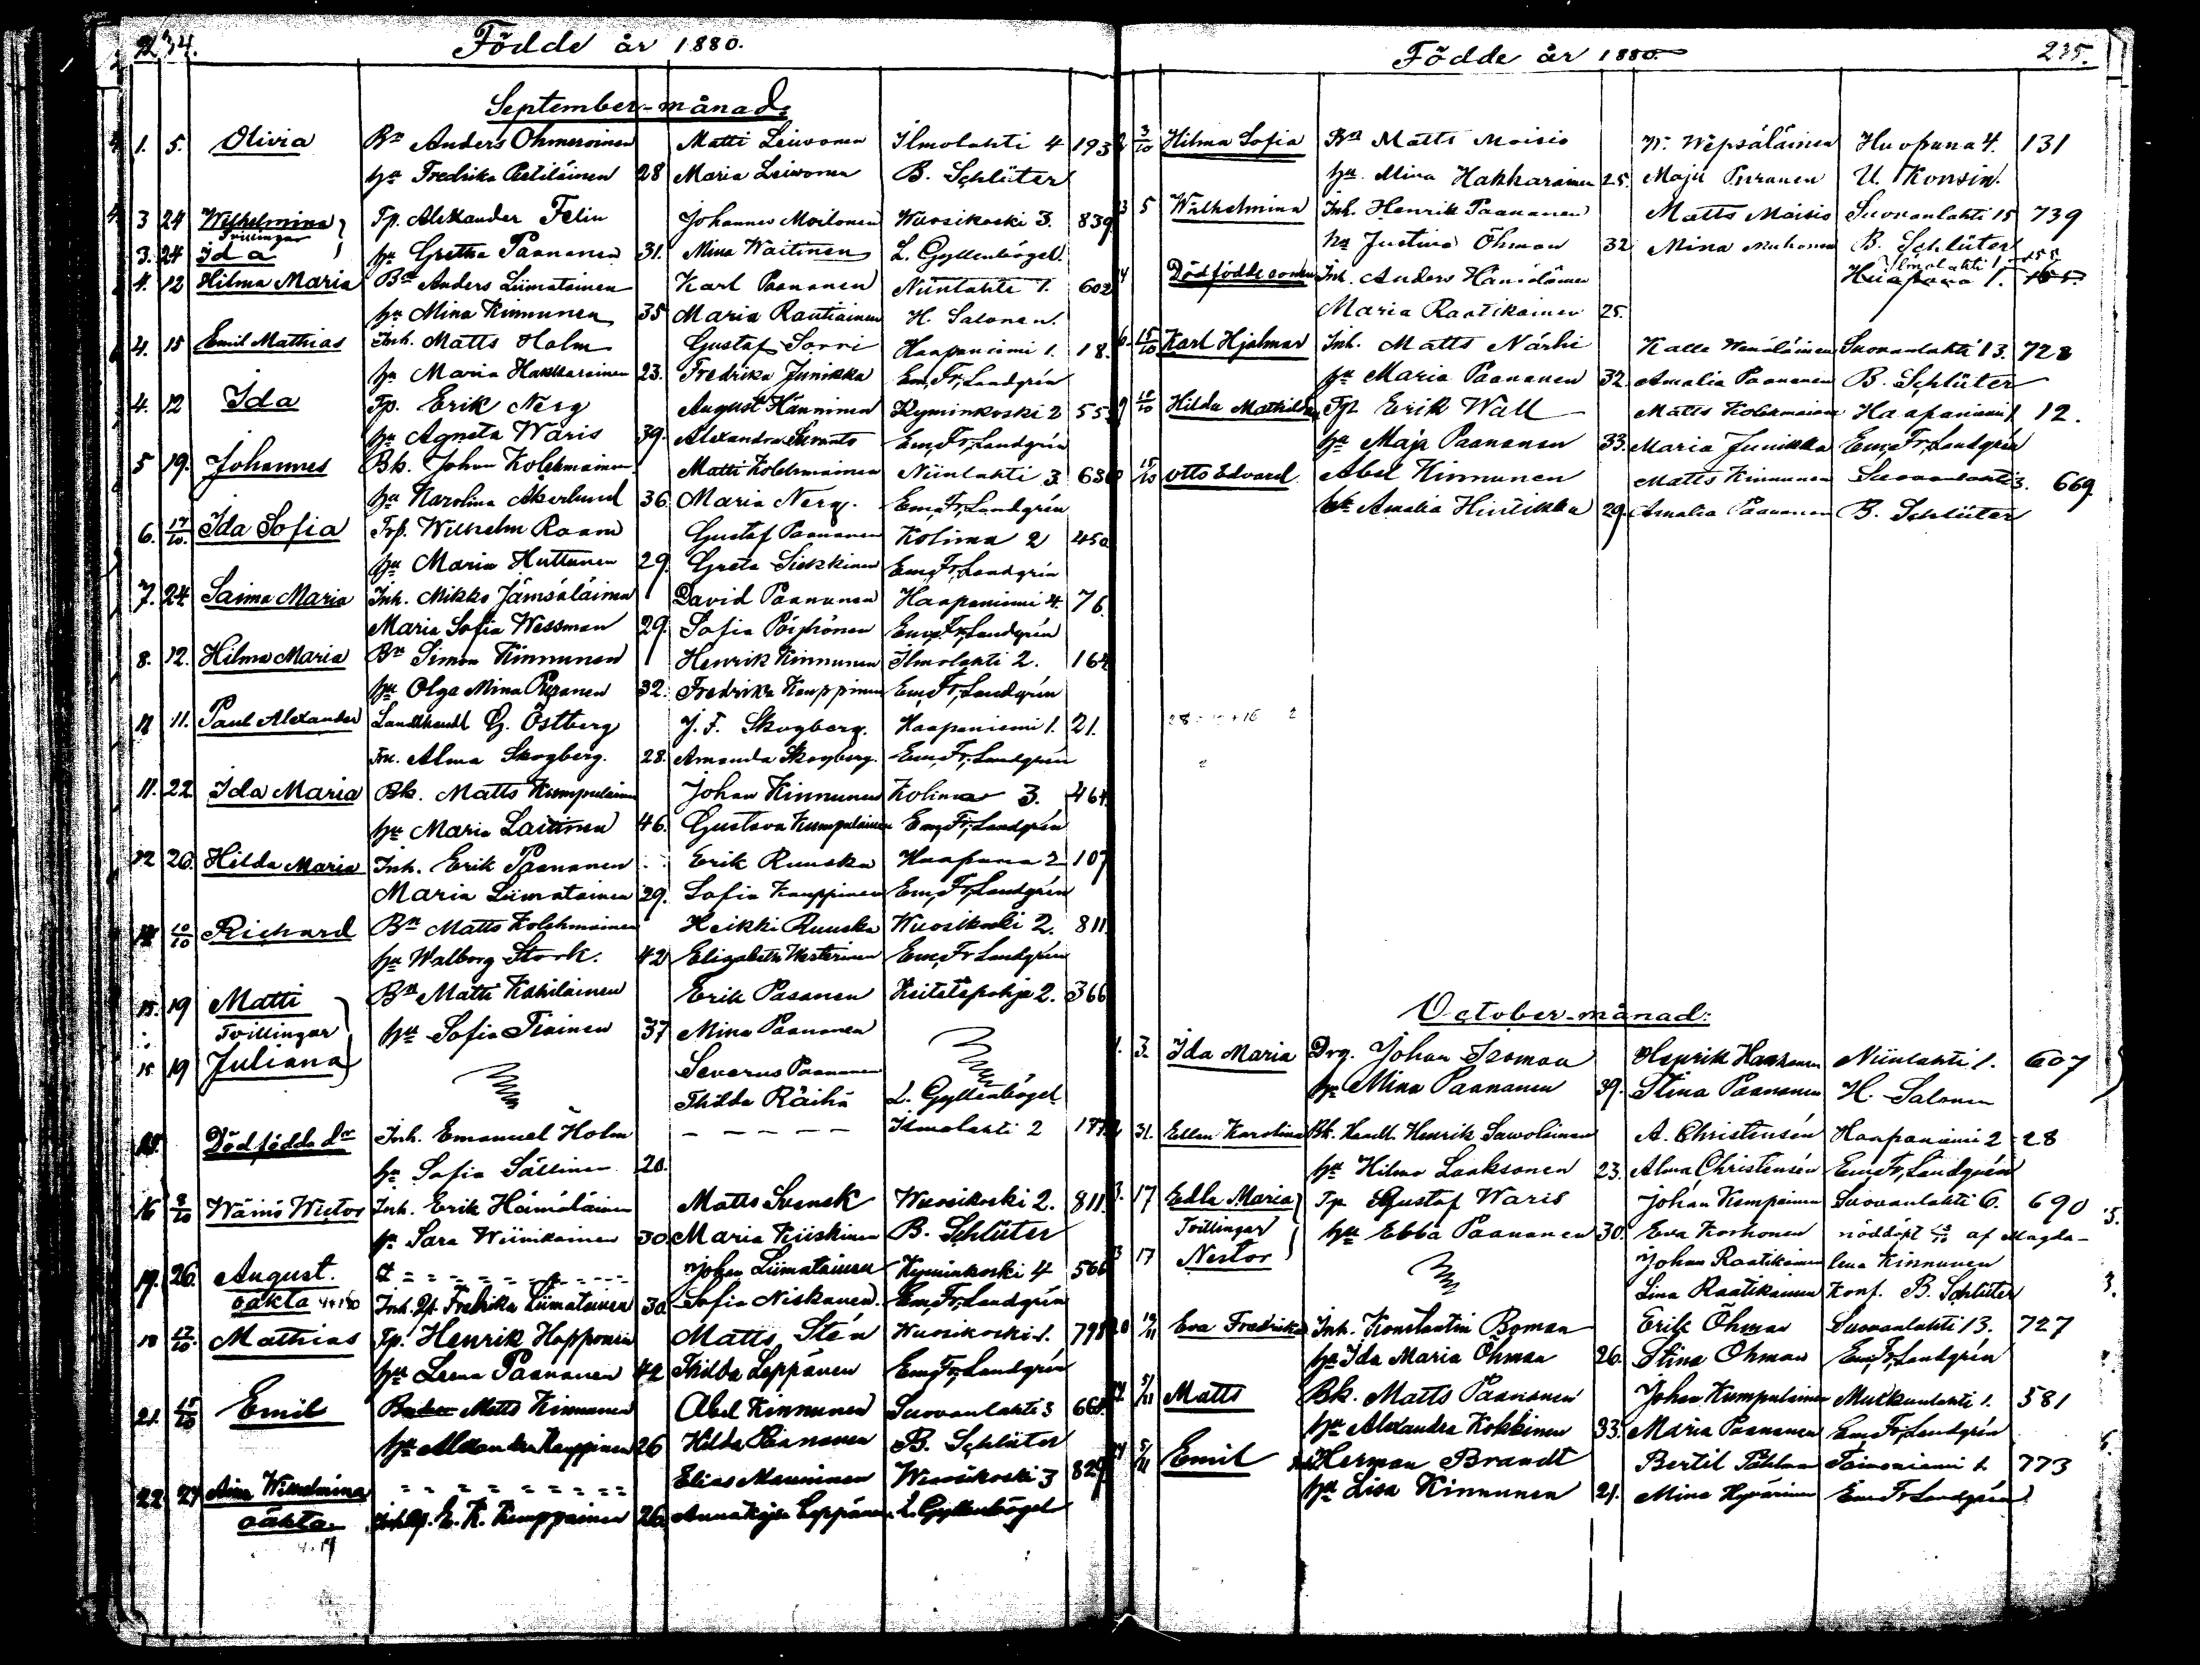 234.
Födde år 1880.
September-månad:
1. 5. Olivia Bn Anders Ohmeroinen Matti Leivonen Ilmolahti 4 193
hu Fredrika Pestiläinen 28 Maria Leivonen B. Schlüter
3 24 Wilhelmina Tp. Alexander Felin Johannes Moilonen Wuosikoski 3. 839
Tvillingar
3. 24 Ida hu Gretha Paananen 31. Mina Waitinen L. Gyllenbögel
4. 12 Hilma Maria Bn Anders Liimatainen Karl Paananen Niinlahti 1. 602
hu Mina Kinnunen 35 Maria Rautiainen H. Salonen.
4. 15 Emil Mathias Inh. Matts Holm Gustaf Sorri Haapaniemi 1. 18.
hu Maria Hakkarainen 23. Fredrika Junikka Em. Fr. Landgrén
4. 12 Ida Tp. Erik Nerg August Hänninen Kyminkoski 2 553
hu Agneta Waris 39. Alexandra Em. Fr. Landgrén
5 19. Johannes Bk. Johan Kolehmainen Matti Kolehmainen Niinlahti 3. 636
hu Karolina Åkerlund 36. Maria Nerg. Em. Fr. Landgrén
6. 17/10. Ida Sofia Trp. Wilhelm Raano Gustaf Paananen Kolima 2 450
hu Maria Huttunen 29. Greta Siekkinen Em. Fr. Landgrén
7. 24. Saima Maria Inh. Mikko Jämsäläinen David Paananen Haapaniemi 4. 76.
Maria Sofia Wessman 29. Sofia Pöyhönen Em. Fr. Landgrén
8. 12. Hilma Maria Bn Simon Kinnunen Henrik Kinnunen Ilmolahti 2. 164
hu Olga Mina Puranen 32. Fredrika Kauppinen Em. Fr. Landgrén
11. Paul Alexander Landthandl G. Östberg J. F. Skogberg. Haapaniemi 1. 21.
Fru. Alma Skogberg. 28. Amanda Skogberg. Em. Fr. Landgrén
11. 22. Ida Maria Bk. Matts Kumpulainen Johan Kinnunen Kolima 3. 464
hu Maria Laitinen 46. Gustava Kumpulainen Em. Fr. Landgrén
12 20. Hilda Maria Inh. Erik Paananen Erik Ruuska Huopana 2 107
Maria Liimatainen 29. Sofia Kauppinen Em. Fr. Landgrén
10/10 Richard Bn Matts Kolehmainen Heikki Ruuska Wuosikoski 2. 811.
hu Walborg Stork. 42 Elizabeth Westerinen Em. Fr. Landgrén
15. 19 Matti Bn Matti Kahiläinen Erik Pasanen Keitelepohja 2. 366
Tvillingar hu Sofia Tiainen 37 Mina Paananen
15 19 Juliana Severus Paananen
Thilda Räihä L. Gyllenbögel
Dödfödda dr Inh. Emanuel Holm - - - - - Ilmolahti 2
hu Sofia Sällinen 20.
16 Wäinö Wictor Inh. Erik Hämäläinen Matts Svensk Wuosikoski 2. 811.
hu Sara Wiinikainen 30. Maria Kiiskinen B. Schlüter
19. 26. August. Johan Liimatainen Kyminkoski 4 566
oäkta Inh. Qf. Fredrika Liimatainen 30. Sofia Niskanen. Em. Fr. Landgrén
17/10. Mathias Tp. Henrik Hopponen Matts Stén Wuosikoski 1. 798
hu Leena Paananen 42 Thilda Leppänen Em. Fr. Landgrén
21. 15/10 Emil Matts Kinnunen Abel Kinnunen Suovanlahti 3 668
hu Alexandra Kauppinen 26 Hilda Paananen B. Schlüter
22. 27 Aina Wilhelmina - - - - - - - Elias Manninen Wuosikoski 3 829
oäkta. E. K. Kemppainen 26. Anna Kajsa Leppänen L. Gyllenbögel
Födde år 1880.
235.
3/10 Hilma Sofia Bn Matts Moisio W. Wepsäläinen Huopana 4. 131
hu. Mina Hakkarainen 25. Maja Puranen U. Konsin.
5 Wilhelmina Inh. Henrik Paananen Matts Moisio Suovanlahti 15 739
hu Justina Öhman 32 Mina Muhonen B. Schlüter
Dödfödde sonen Inh. Anders Hämäläinen Ilmolahti 1. 155
Huopana 1.
Maria Raatikainen 25.
15/10 Karl Hjalmar Inh. Matts Närhi Kalle Wenäläinen Suovanlahti 13. 728
hu Maria Paananen 32. Amalia Paananen B. Schlüter
10/10 Hilda Mathilda Tp Erik Wall Matts Kolehmainen Haapaniemi 1 12.
hu Maja Paananen 33. Maria Junikka Em. Fr. Landgrén
15/10 Otto Edvard. Abel Kinnunen Matts Kinnunen Suovanlahti 3. 669
hu Amalia Hintikka 29. Amalia Paananen B. Schlüter
October-månad:
1. 3. Ida Maria Drg. Johan Isoman Henrik Hankonen Niinlahti 1. 607
hu Mina Paananen 39. Stina Paananen H. Salonen
31. Ellen Karolina Bk. Handl. Henrik Sawolainen A. Christensén Haapaniemi 2 28
hu Hilma Laaksonen 23. Alma Christensén Em. Fr. Landgrén
3. 17 Edla Maria Tp Gustaf Waris Johan Kempainen Suovanlahti 6. 690
Tvillingar hu Ebba Paananen 30. Eva Korhonen nöddöpt af Magda-
3 17 Nestor Johan Raatikainen lena Kinnunen
Lina Raatikainen Konf. B. Schlüter
Eva Fredrika Inh. Konstantin Boman Erik Öhman Suovanlahti 13. 727
hu Ida Maria Öhman 26. Stina Öhman Em. Fr. Landgrén
Matts Bk. Matts Paananen Johan Kumpulainen Muikunlahti 1. 581
hu Alexandra Kokkinen 33. Maria Paananen Em. Fr. Landgrén
5/11 Emil Herman Brandt Bertil Påhlman Taimoniemi 1. 773
hu Lisa Kinnunen 21. Mina Hyvärinen Em. Fr. Landgrén